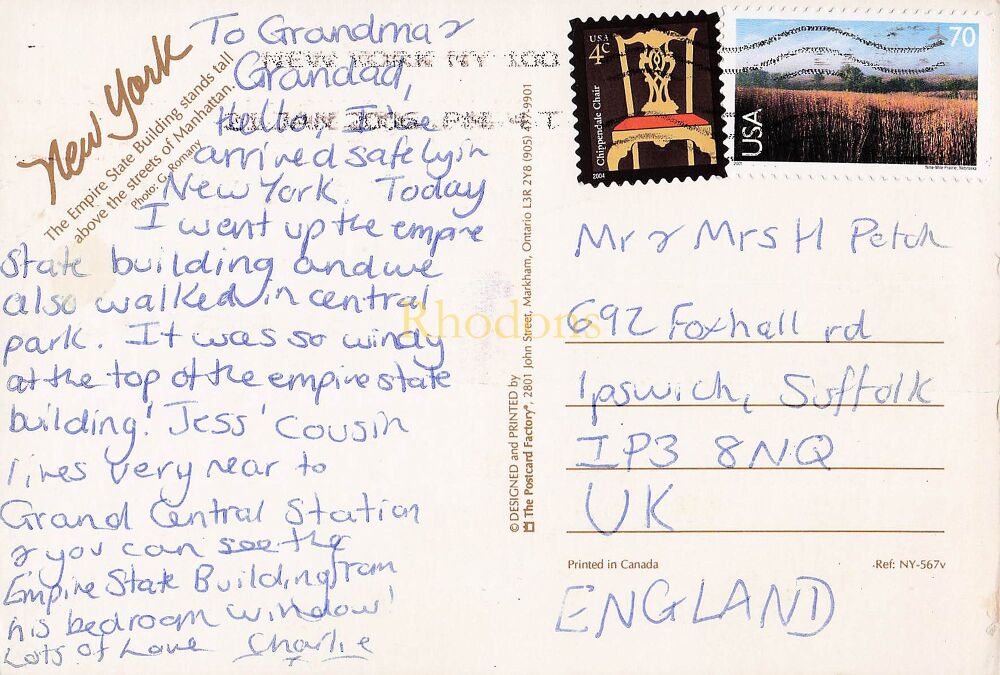 To Grandma &
Grandad,
Hello! I've
arrived safely in
New York. Today
I went up the empire
State building and we
also walked in central
park. It was so windy
at the top of the empire state
building! Jess' cousin
lives very near to
Grand Central Station
& you can see the
Empire State Building from
his bedroom window!
Lots of Love Charlie
x
New York
The Empire State Building stands tall
above the streets of Manhattan.
Photo: G. Romany
NEW YORK NY 100
JAN 2006 PM 4 T
© DESIGNED and PRINTED by
The Postcard Factory®, 2801 John Street, Markham, Ontario L3R 2Y8 (905) 477-9901
USA
4c
Chippendale Chair
2004
70
USA
2001
Nine-Mile Prairie, Nebraska
Mr & Mrs H Petch
692 Foxhall rd
Ipswich, Suffolk
IP3 8NQ
UK
Printed in Canada
Ref: NY-567v
ENGLAND
Rhodons